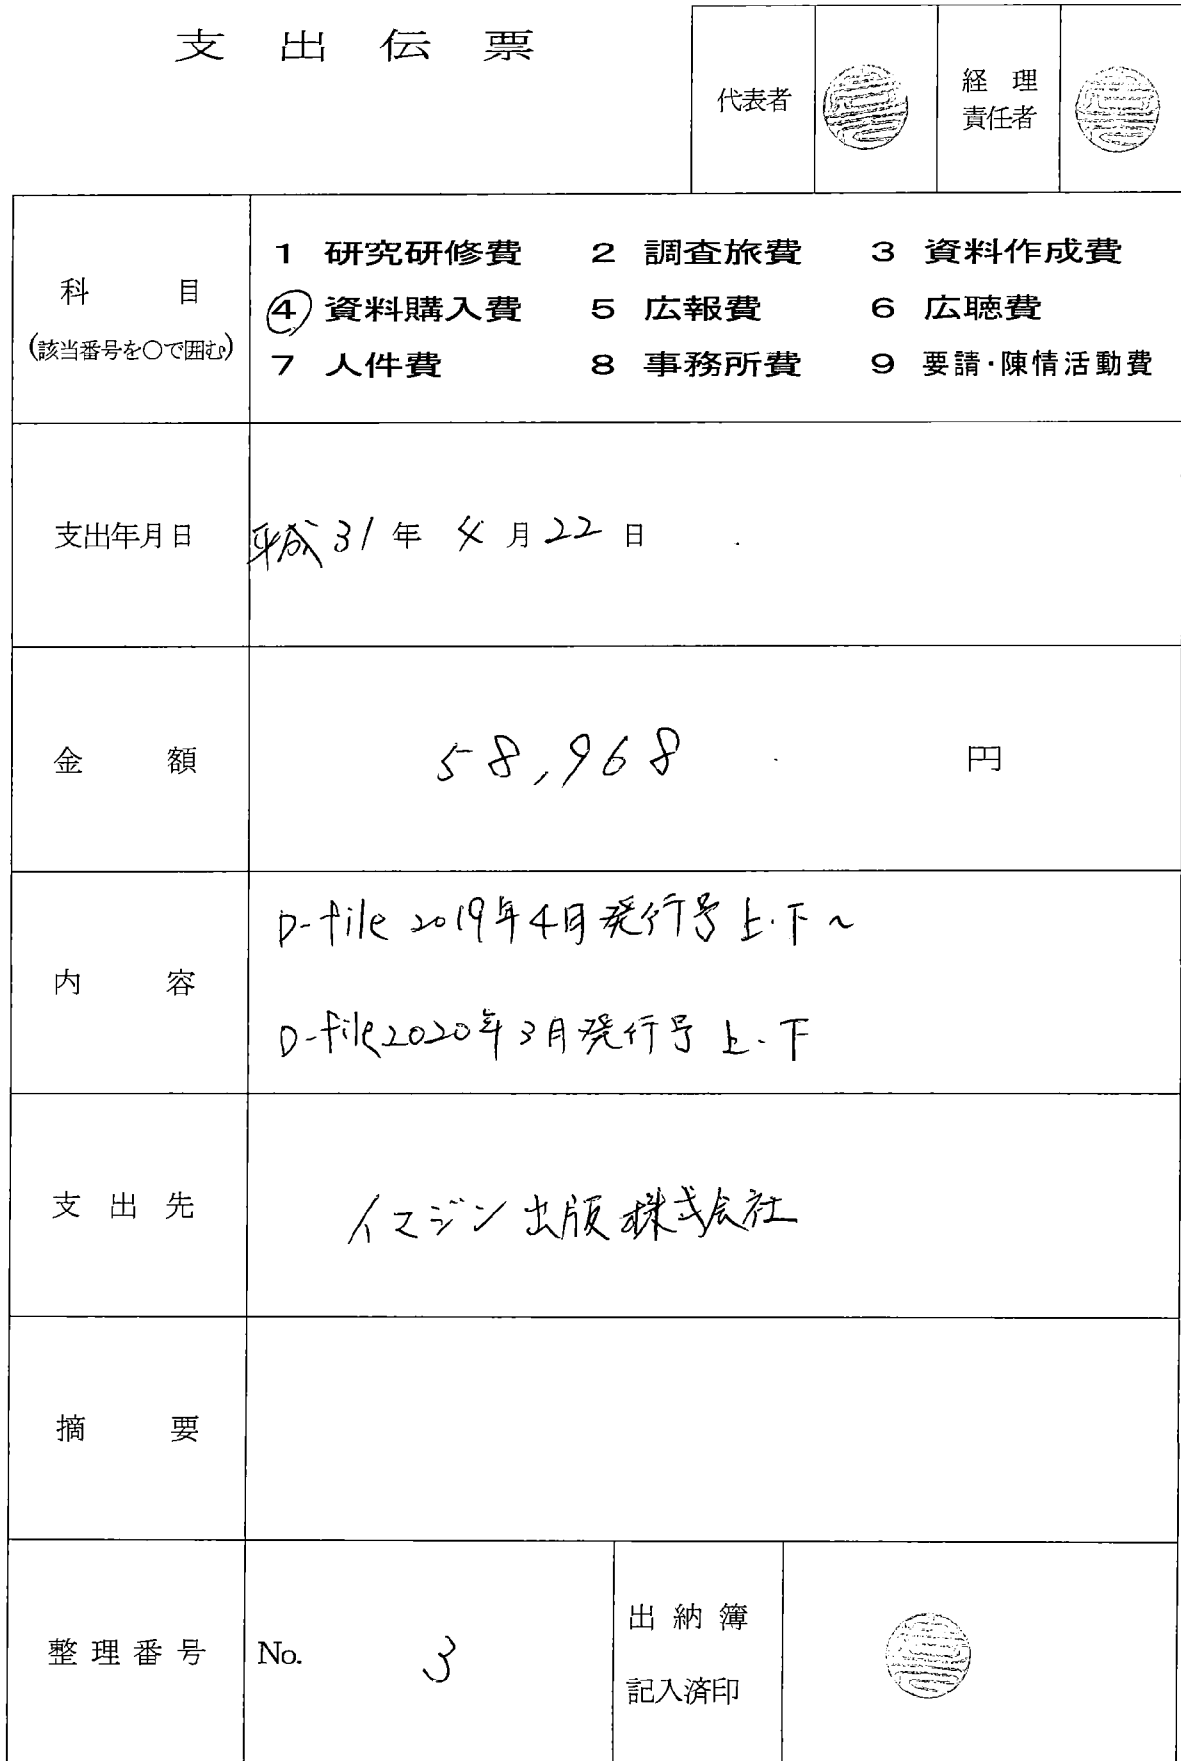 支出伝票
代表者
経理
責任者
科目
(該当番号を○で囲む)
1 研究研修費 2 調査旅費 3 資料作成費
4 資料購入費 5 広報費 6 広聴費
7 人件費 8 事務所費 9 要請・陳情活動費
支出年月日
平成31年 4月22日
金額
58,968 円
内容
D-file 2019年4月発行号 上・下~
D-file2020年3月発行号 上・下
支出先
イマジン出版株式会社
摘要
整理番号
No. 3
出納簿
記入済印